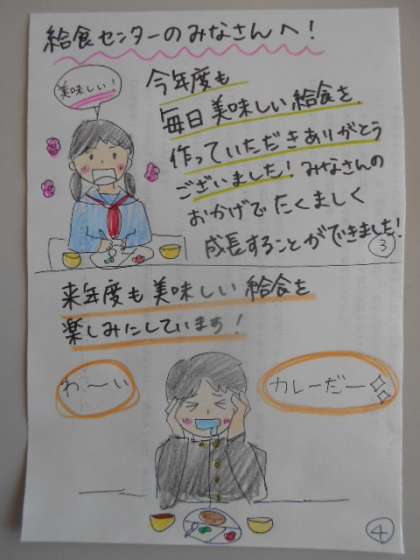 給食センターのみなさんへ!
美味しい!
今年度も
毎日美味しい給食を
作っていただきありがとう
ございました!みなさんの
おかげでたくましく
成長することができました!
③
来年度も美味しい給食を
楽しみにしています!
わ〜い
カレーだー
④